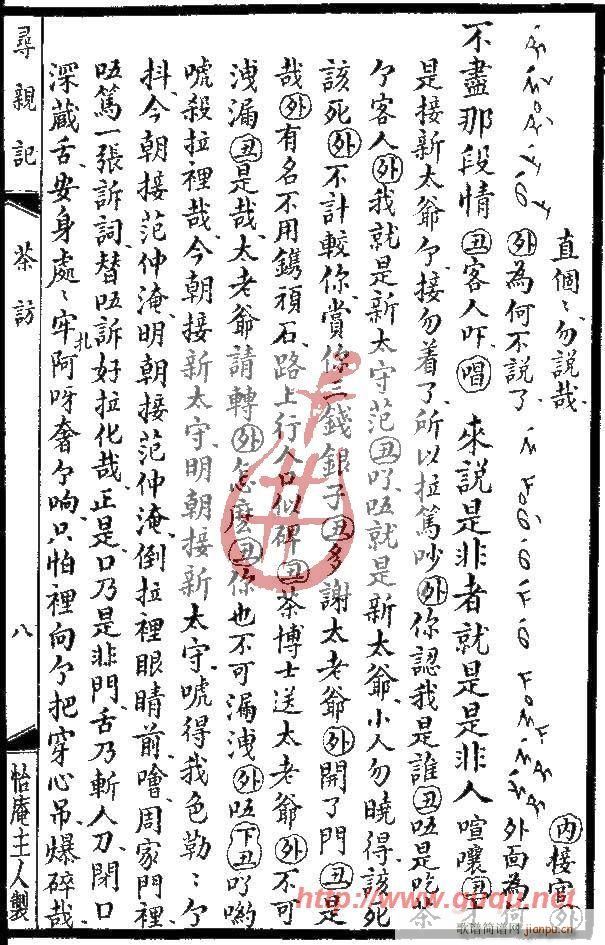 直個〻勿說哉
㊤內接官外
不盡那段情丑客人吓唱來說是非者就是是非人喧嚷丑
外為何不說了外面為何
是接新太爺个接勿着了所以拉篤吵外你認我是誰丑唔是吃茶
个客人外我就是新太守范丑吖唔就是新太爺小人勿曉得該死
該死外不計較你賞你三錢銀子丑多謝太老爺外開了門丑是
哉外有名不用鐫頑石路上行人口似碑丑茶博士送太老爺外不可
洩漏丑是哉太老爺請轉外怎麼丑你也不可漏洩外唔下丑吖喲
唬殺拉裡哉今朝接新太守明朝接新太守唬得我色勒〻个
抖今朝接范仲淹明朝接范仲淹倒拉裡眼睛前噲周家門裡
唔篤一張訴詞替唔訴好拉化哉正是口乃是非門舌乃斬人刀閉口
深藏舌安身處〻牢扎阿呀奢个响只怕裡向个把穿心吊爆碎哉
尋親記
茶訪
八
怡庵主人製
http://www.guqu.net
歌谱简谱网
jianpu.cn